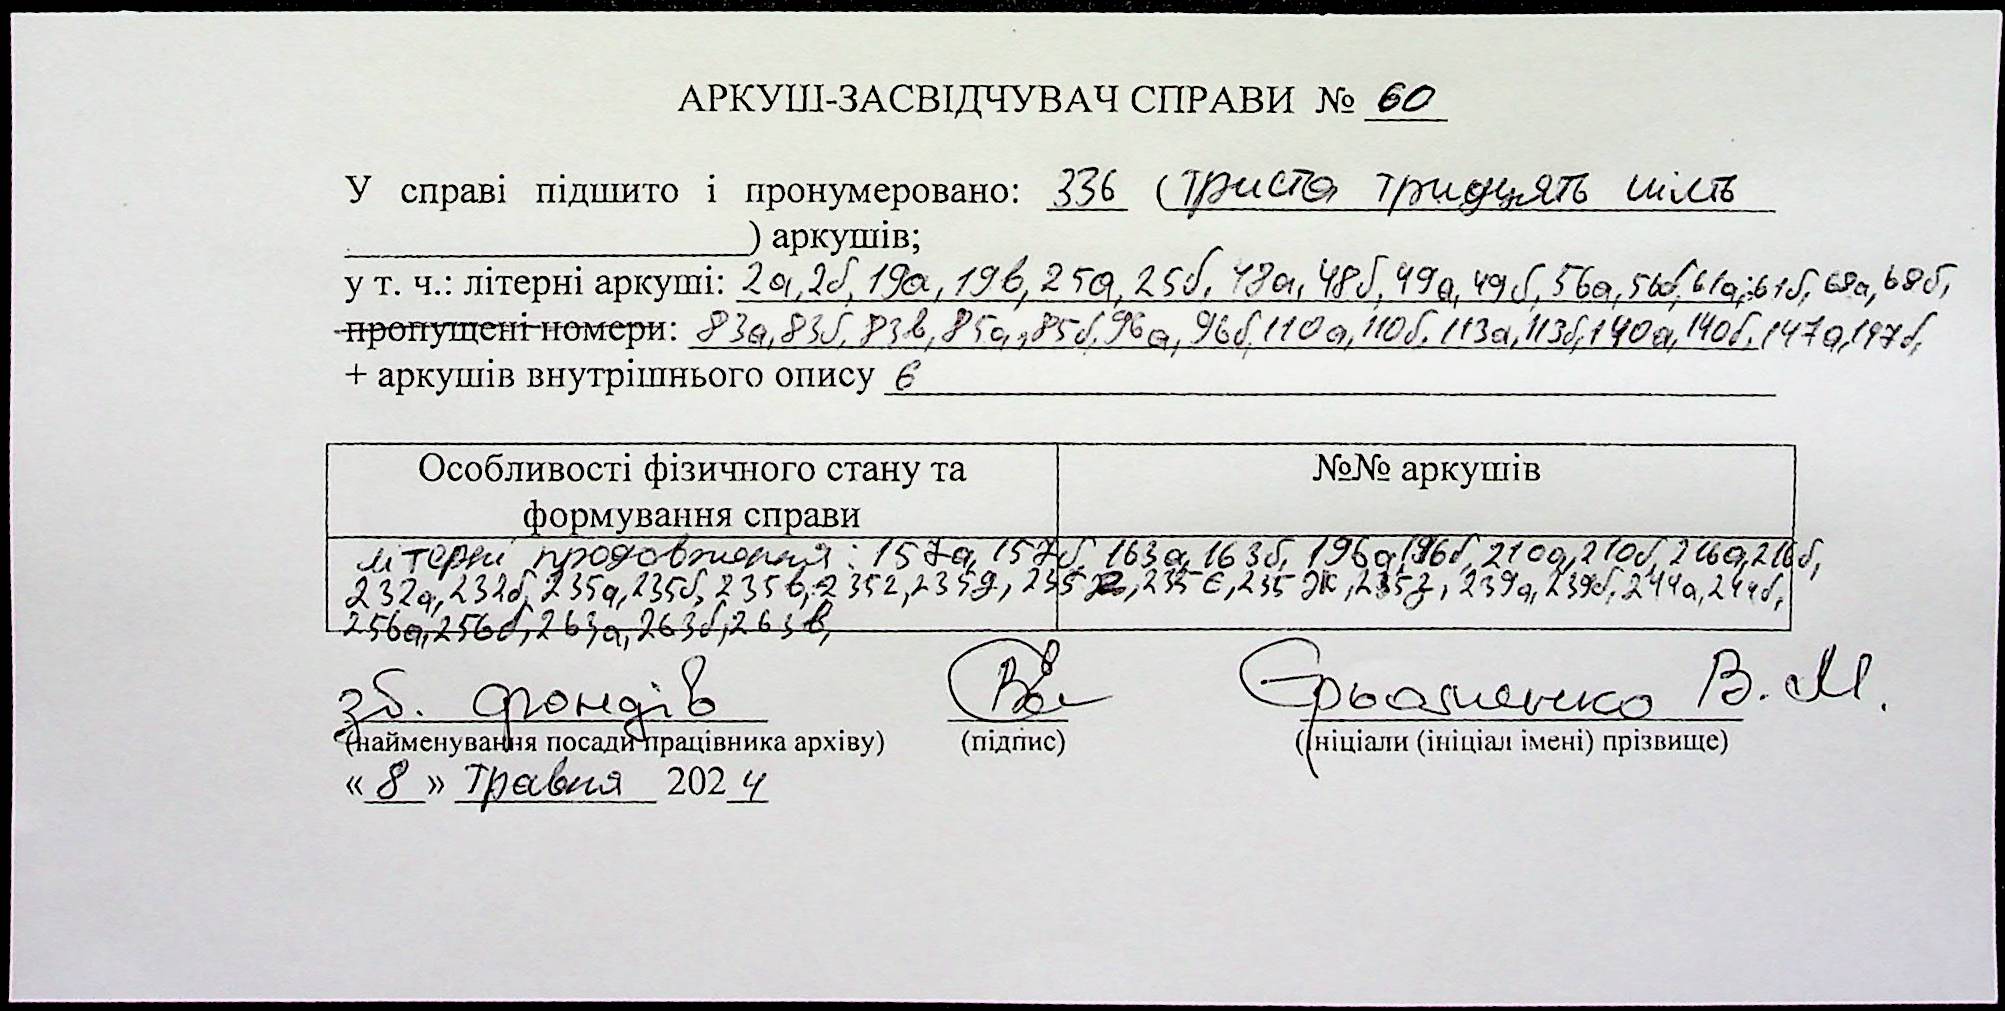 АРКУШ-ЗАСВІДЧУВАЧ СПРАВИ № 60
У справі підшито і пронумеровано: 336 (триста тридцять шість
) аркушів;
у т. ч.: літерні аркуші: 2а, 2б, 19а, 19в, 25а, 25б, 48а, 48б, 49а, 49б, 56а, 56б, 61а, 61б, 68а, 68б,
пропущені номери: 83а, 83б, 83в, 85а, 85б, 96а, 96б, 110а, 110б, 113а, 113б, 140а, 140б, 147а, 147б,
+ аркушів внутрішнього опису 6
Особливості фізичного стану та
формування справи
№№ аркушів
літерні продовження: 157а, 157б, 163а, 163б, 196а, 196б, 210а, 210б, 216а, 216б,
232а, 232б, 235а, 235б, 235в, 235г, 235д, 235 є, 235 ж, 235з, 239а, 239б, 244а, 244б,
256а, 256б, 263а, 263б, 263в,
зб. фондів
В. М.
(найменування посади працівника архіву) (підпис) (ініціали (ініціал імені) прізвище)
« 8 » травня 2024